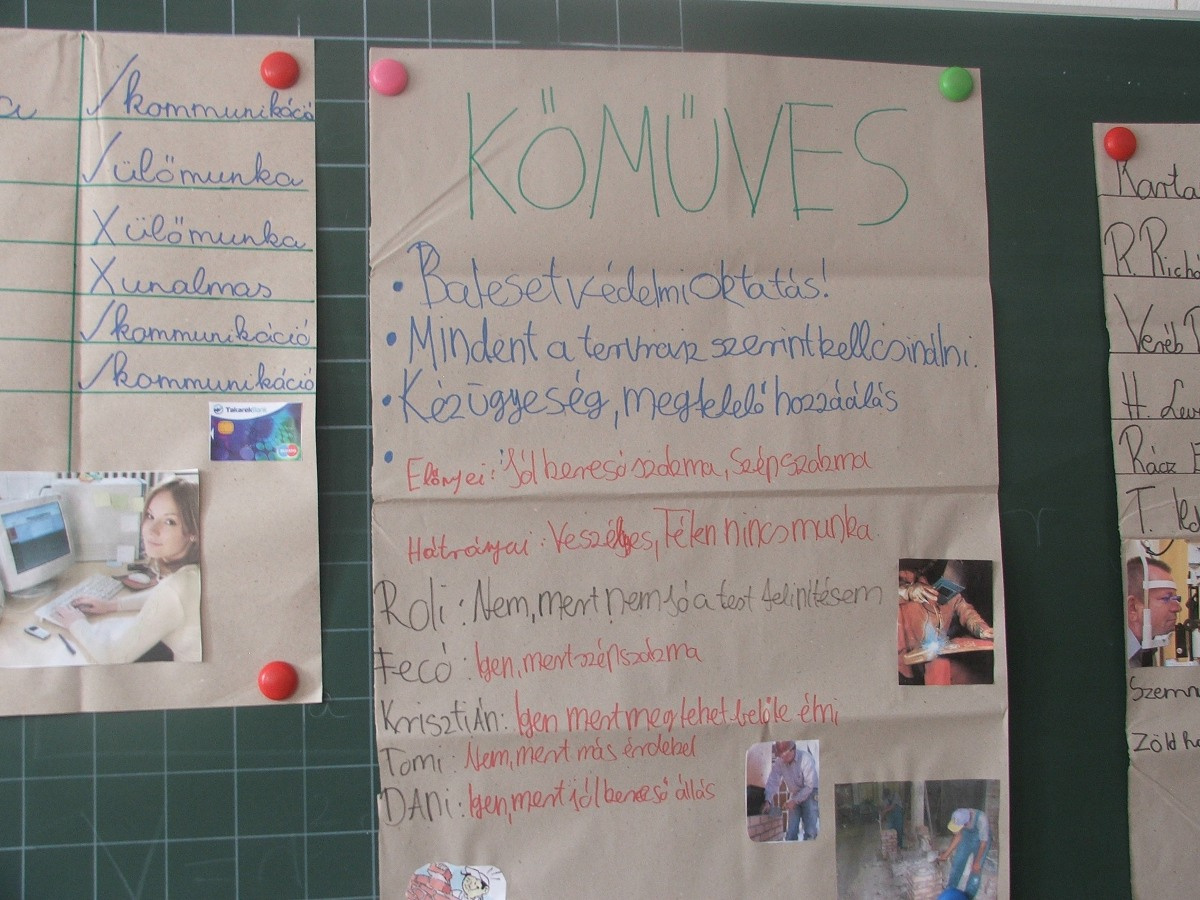 a
√ kommunikáció
√ ülőmunka
X ülőmunka
X unalmas
√ kommunikáció
√ kommunikáció
TakarekBank
KŐMŰVES
• Balesetvédelmi oktatás!
• Mindent a tervrajz szerint kell csinálni.
• Kézügyeség, megfelelő hozzáálás
• Előnyei: Jól bereső szakma, Szép szakma
Hátrányai: Veszélyes, Télen nincs munka.
Roli: Nem, mert nem jó a test felinítésem
Fecó: Igen, mert szép szakma
Krisztián: Igen mert meg lehet belőle élni
Tomi: Nem, mert más érdekel
DANi: Igen, mert jól bereső állás
Karta
R. Richá
Veréb T
H. Lev
Rácz
T.
Szemn
Zöld h